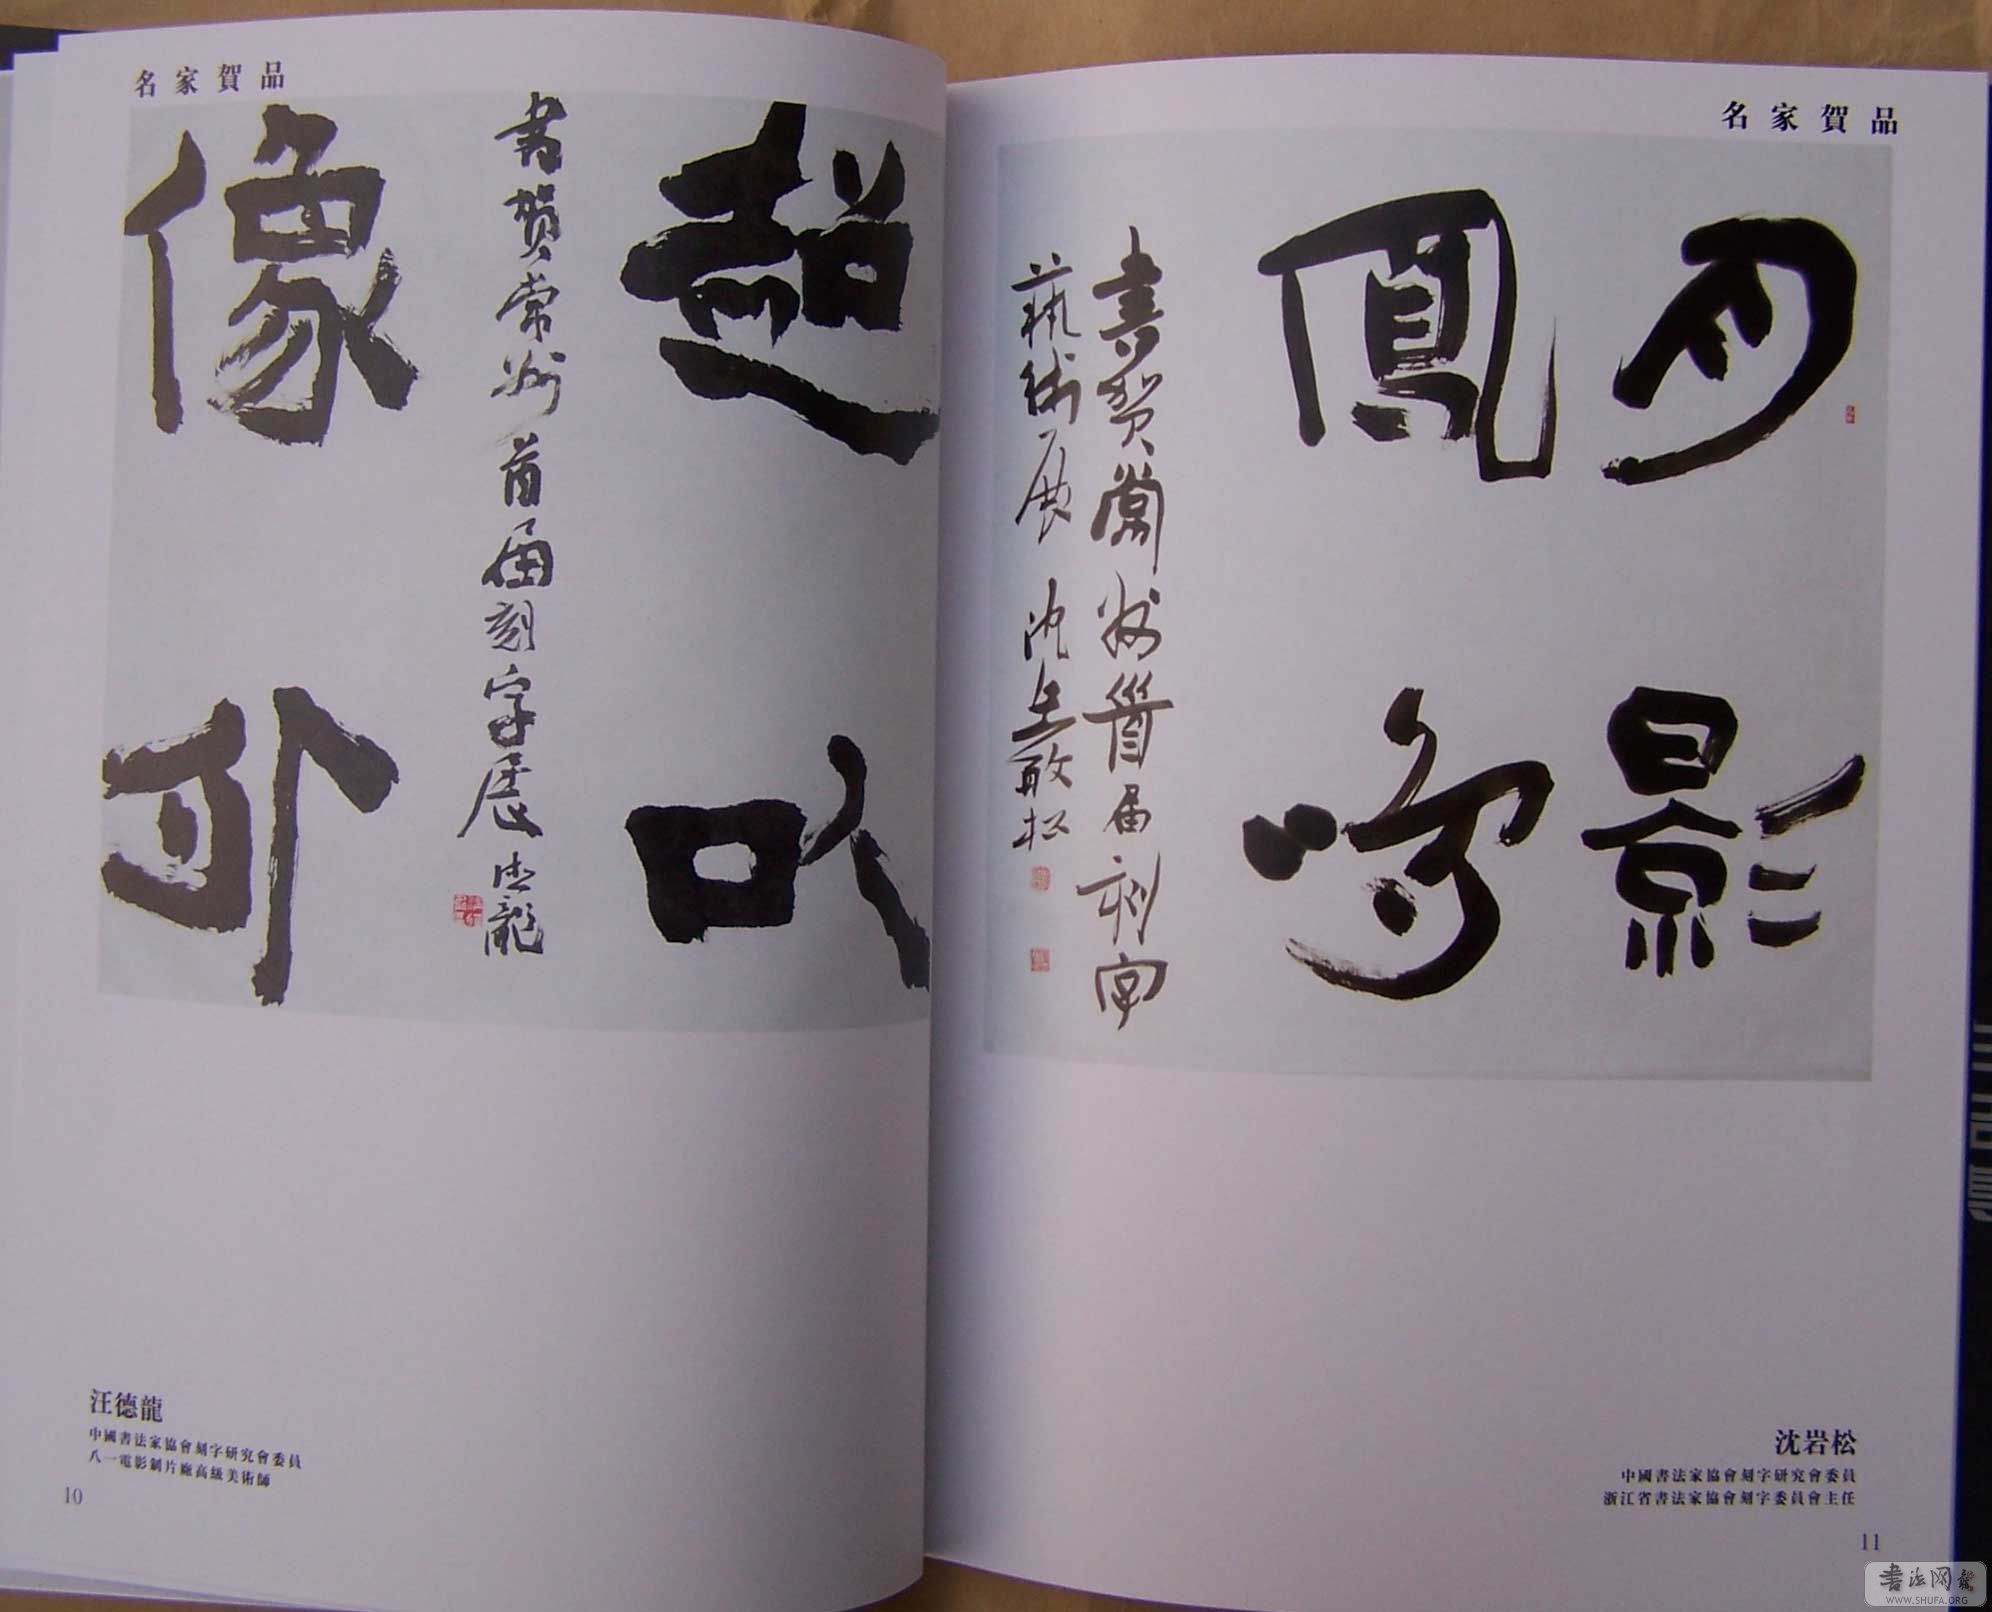 名家賀品
超以
書賀常州首届刻字展 德龍
像外
汪德龍
中國書法家協會刻字研究會委員
八一電影制片廠高級美術師
10
名家賀品
月影
鳳鳴
書賀常州首届刻字
藝術展 沈巖松
沈岩松
中國書法家協會刻字研究會委員
浙江省書法家協會刻字委員會主任
11
書法网
WWW.SHUFA.ORG